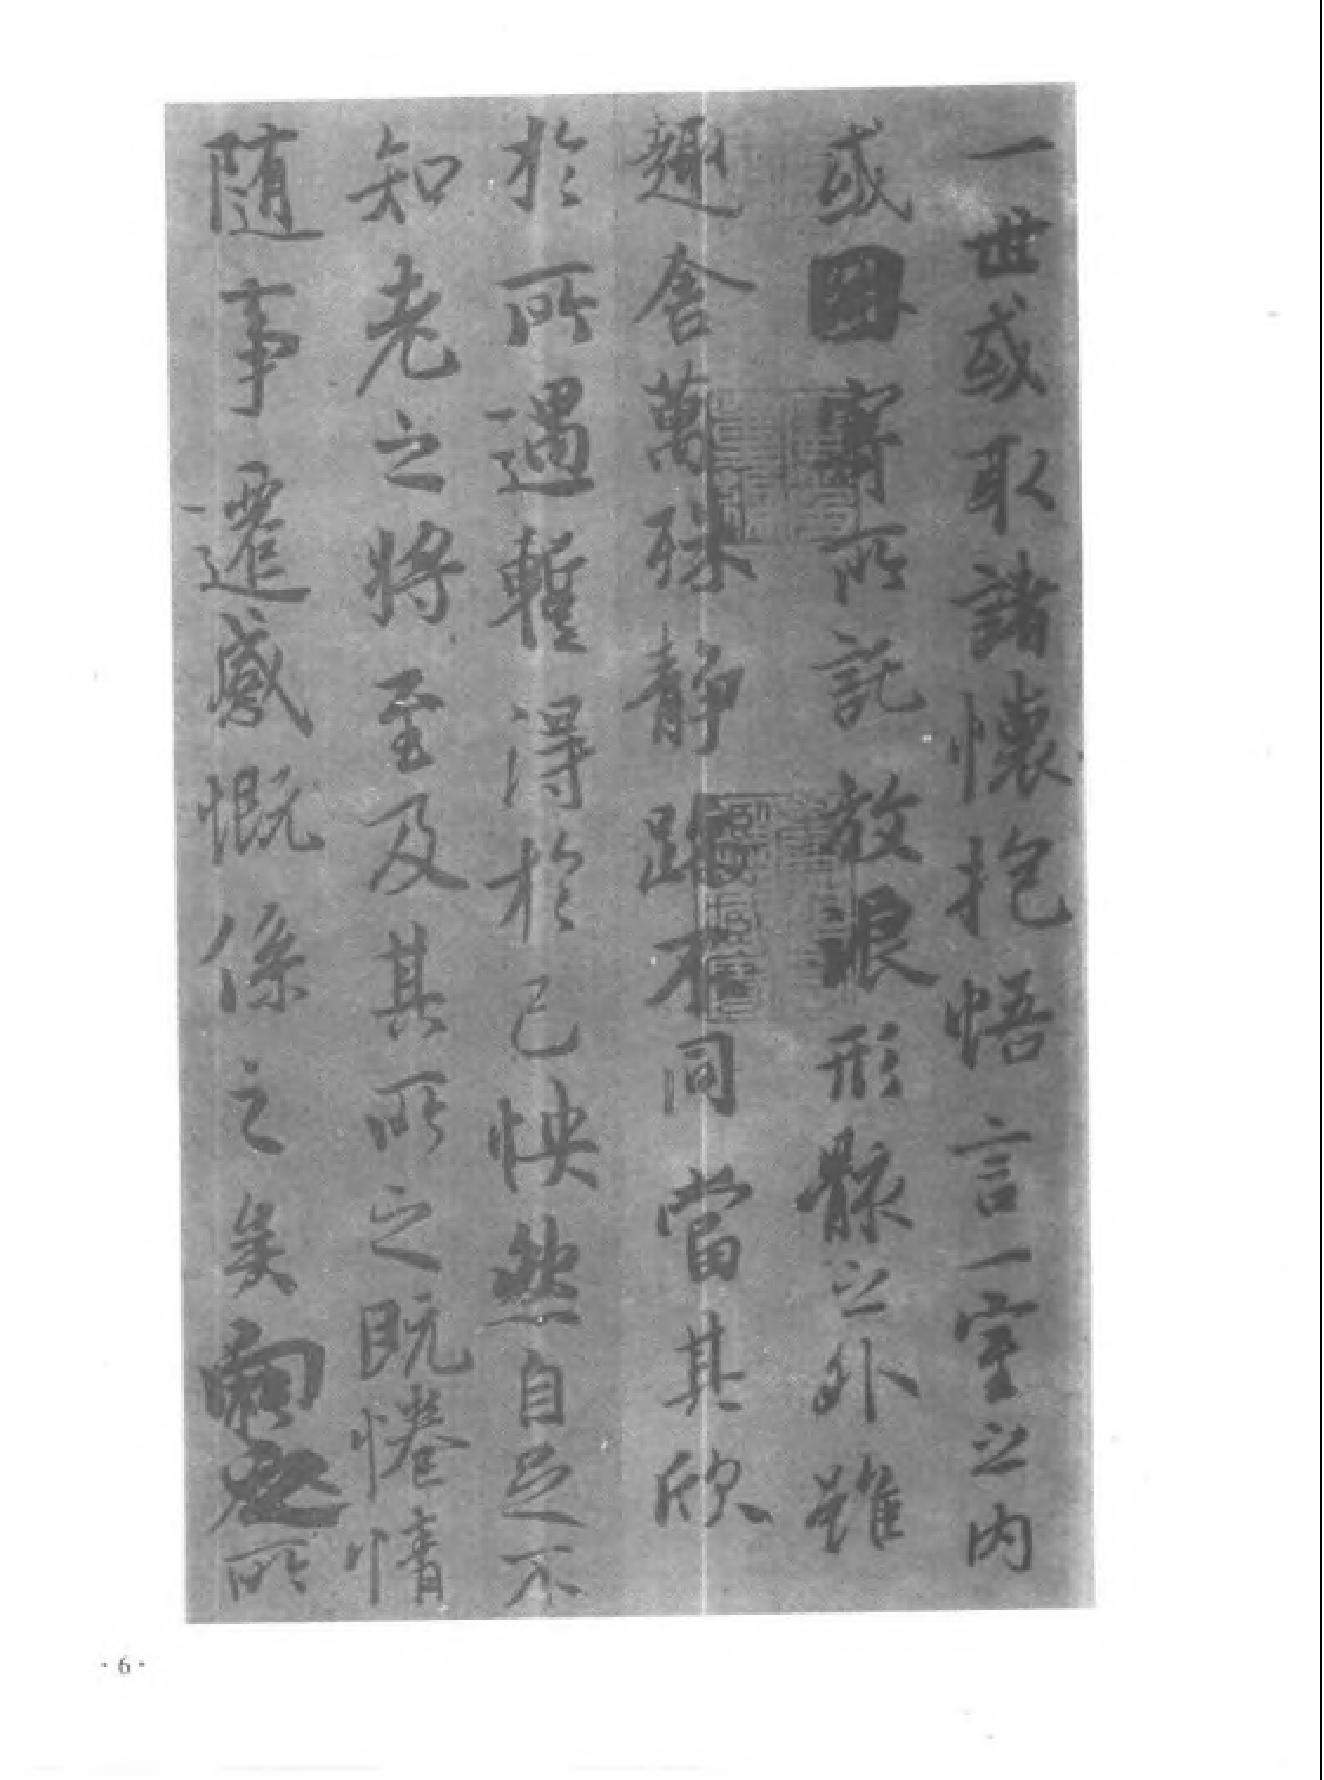 一世或取諸懷抱悟言一室之內
或因寄所託放浪形骸之外雖
趣舍萬殊靜躁不同當其欣
於所遇蹔得於己怏然自足不
知老之將至及其所之既惓情
隨事遷感慨係之矣向之所
·6·